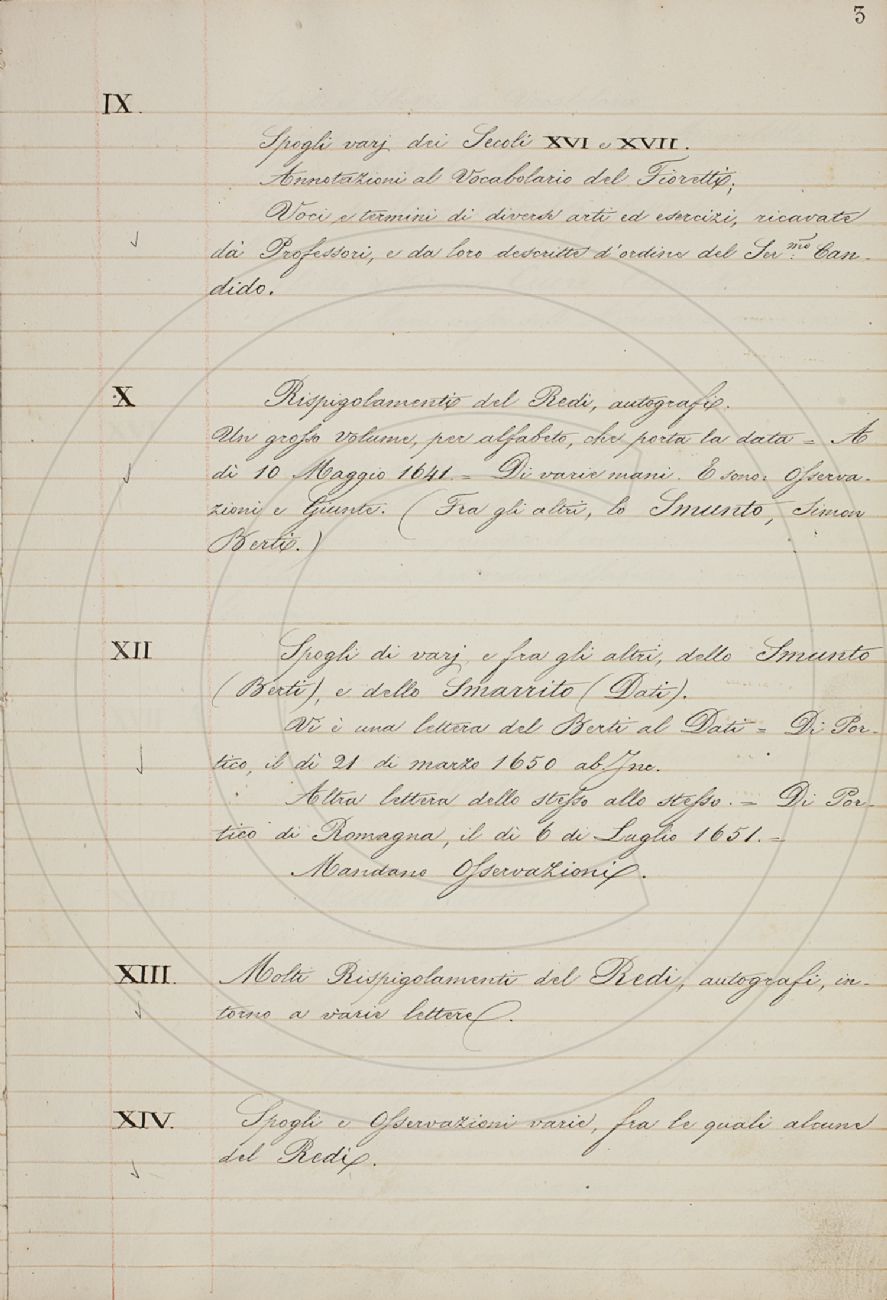 3
IX.
Spogli varj dei Secoli XVI e XVII.
Annotazioni al Vocabolario del Fioretti;
Voci e termini di diverse arti ed esercizi, ricavate
da' Professori, e da loro descritte d'ordine del Ser.mo Can-
dido.
X
Rispigolamenti del Redi, autografi.
Un grosso volume, per alfabeto, che porta la data = A
dì 10 Maggio 1641. = Di varie mani. E sono: Osserva-
zioni e Giunte. (Fra gli altri, lo Smunto, Simon
Berti.)
XII
Spogli di varj e fra gli altri, dello Smunto
(Berti), e dello Smarrito (Dati).
Vi è una lettera del Berti al Dati = Di Por-
tico, il dì 21 di marzo 1650 ab Inc.
Altra lettera dello stesso allo stesso. = Di Por-
tico di Romagna, il dì 6 di Luglio 1651. =
Mandano Osservazioni.
XIII.
Molti Rispigolamenti del Redi, autografi, in-
torno a varie lettere.
XIV.
Spogli e Osservazioni varie, fra le quali alcune
del Redi.